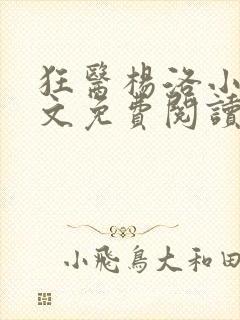 狂醫楊洛小
文免費閱讀
小飛鳥大和田